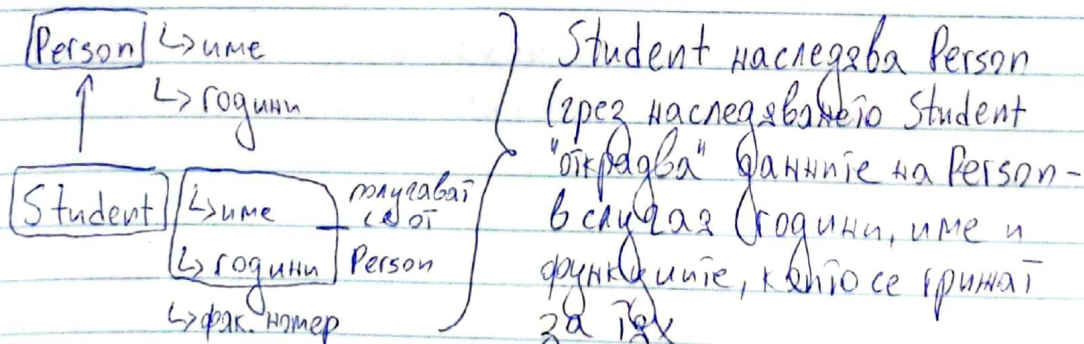 Person ↳ име
↳ години
Student ↳ име
↳ години
↳ фак. номер
получават
се от
Person
Student наследява Person
(чрез наследяването Student
"открадва" данните на Person -
в случая години, име и
функциите, които се грижат
за тях